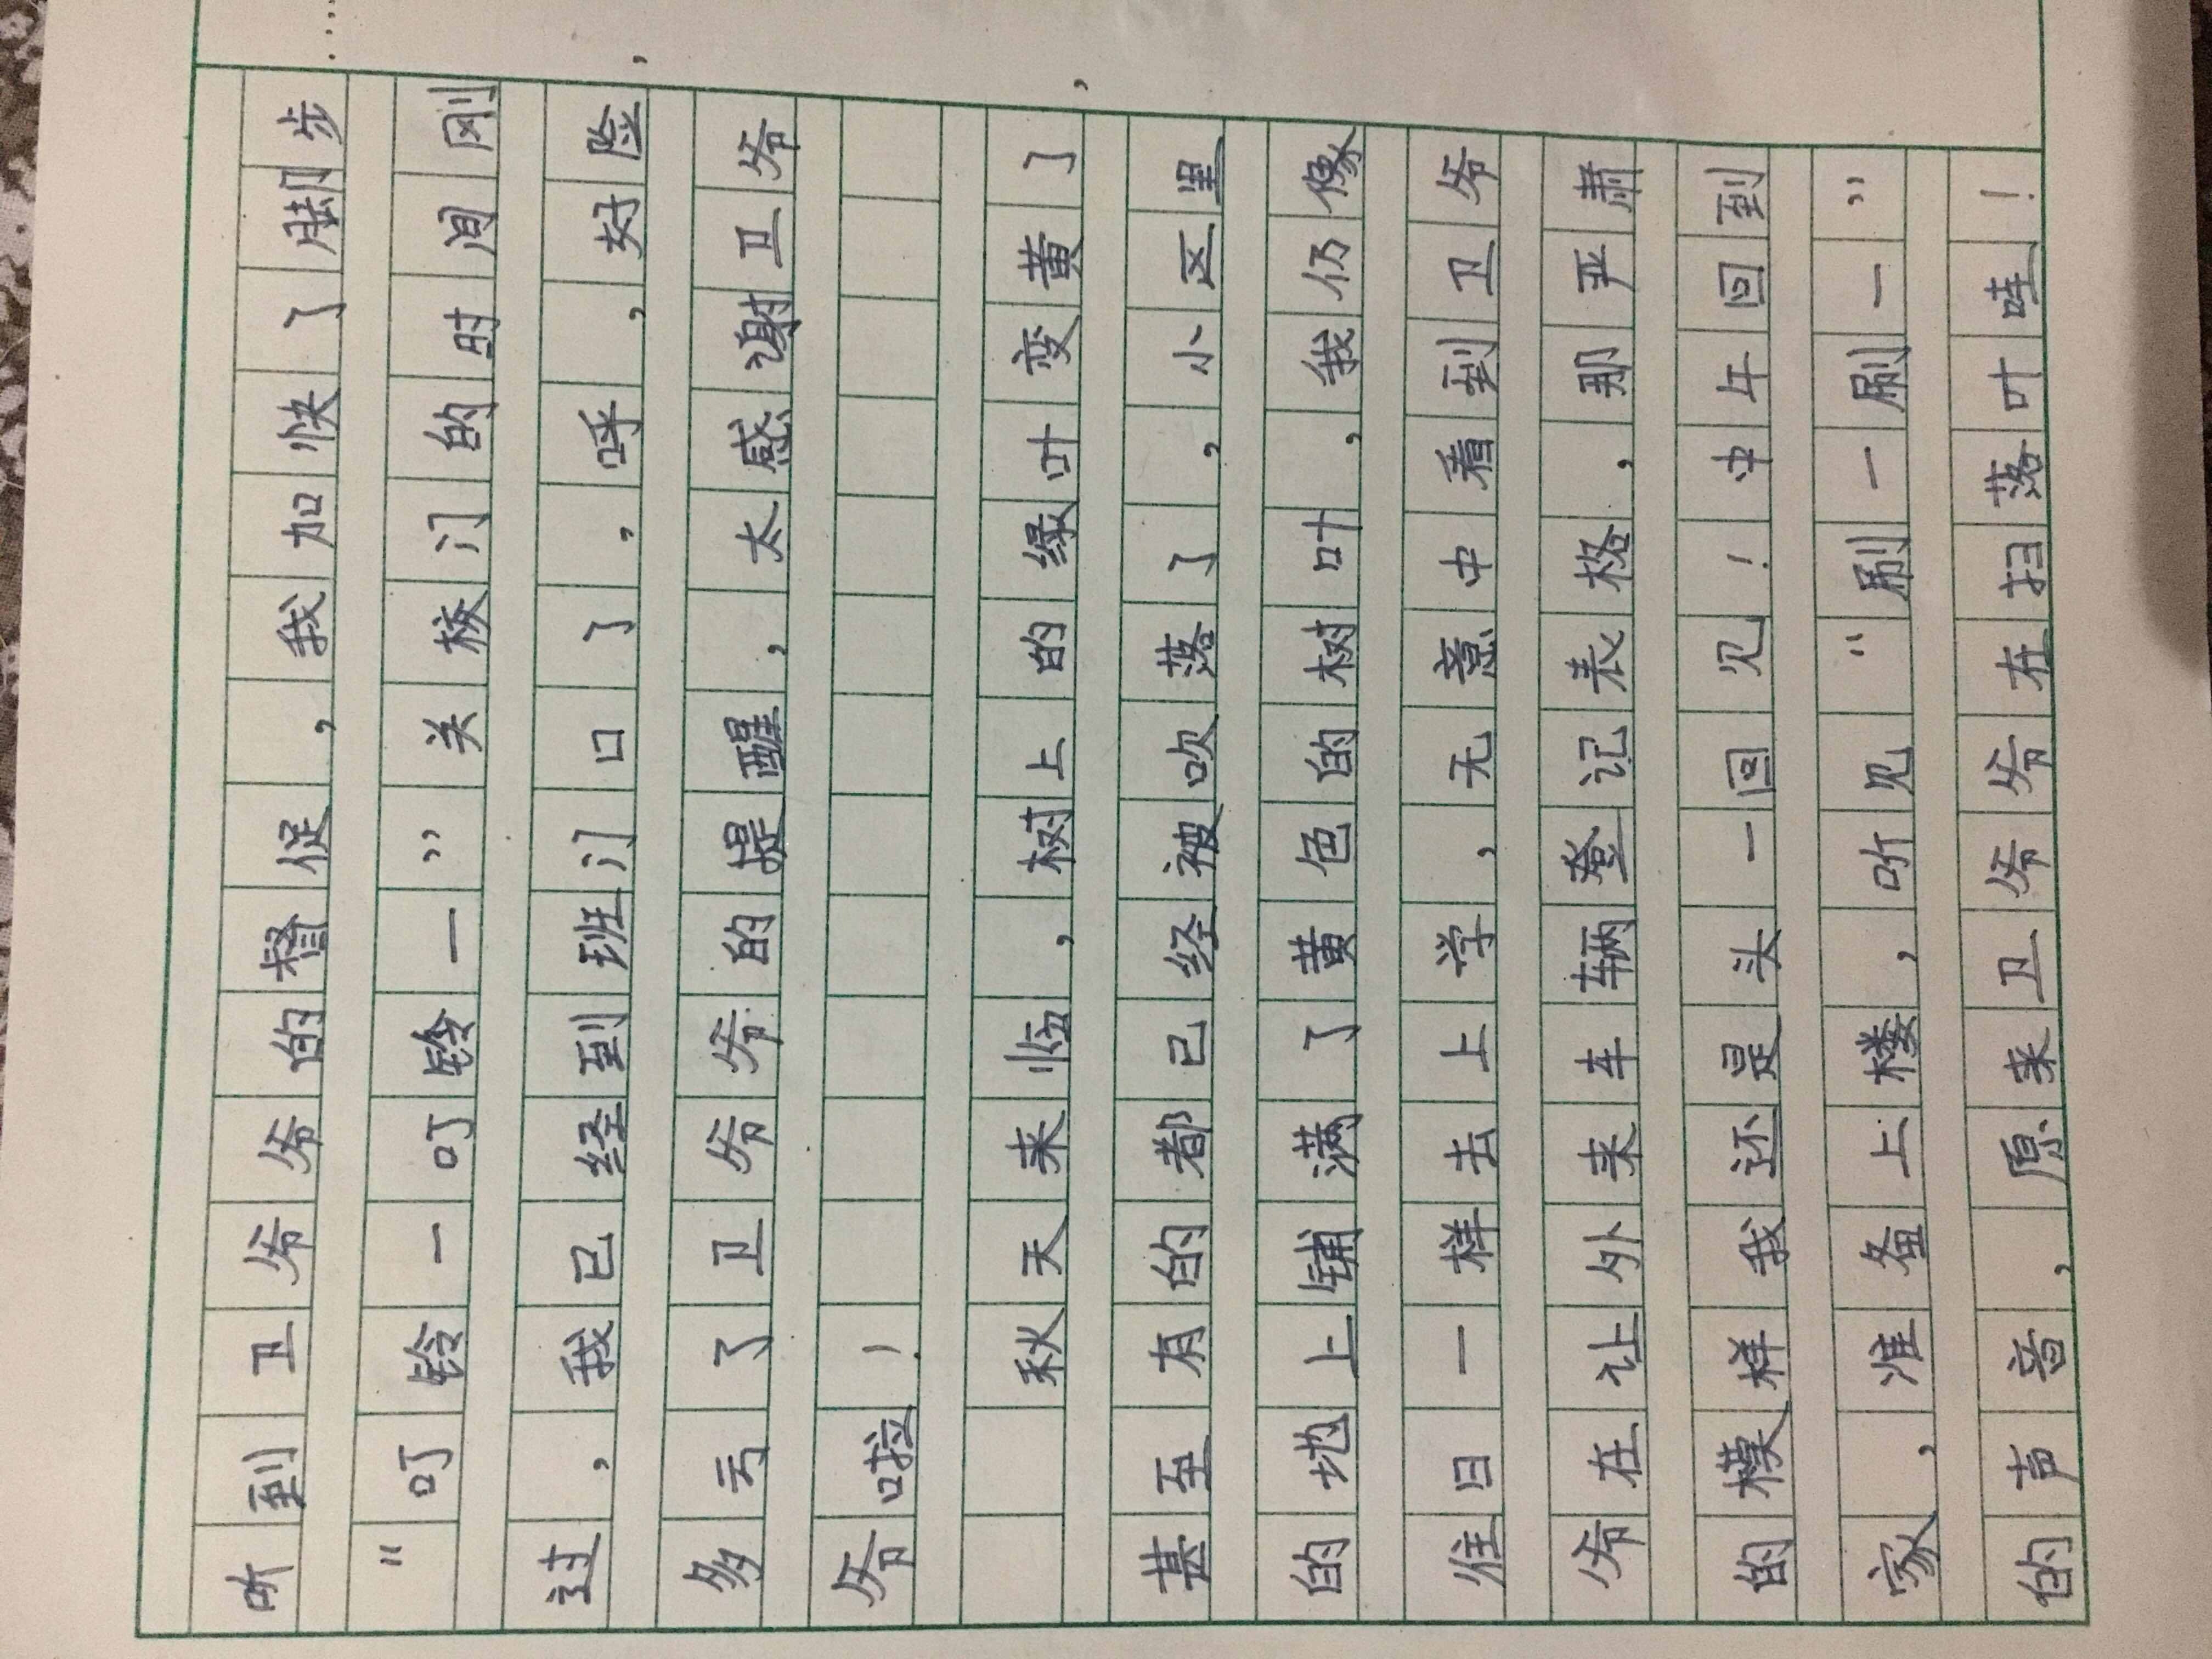 听到卫爷爷的督促，我加快了脚步……
“叮铃一叮铃一”关校门的时间刚
过，我已经到班门口了，呼，好险，
多亏了卫爷爷的提醒，太感谢卫爷
爷啦！
秋天来临，树上的绿叶变黄了，
甚至有的都已经被吹落了，小区里
的地上铺满了黄色的树叶，我仍像
往日一样去上学，无意中看到卫爷
爷在让外来车辆登记表格，那严肃
的模样我还是头一回见！中午回到
家，准备上楼，听见“刷一刷一”
的声音，原来卫爷爷在扫落叶哇！